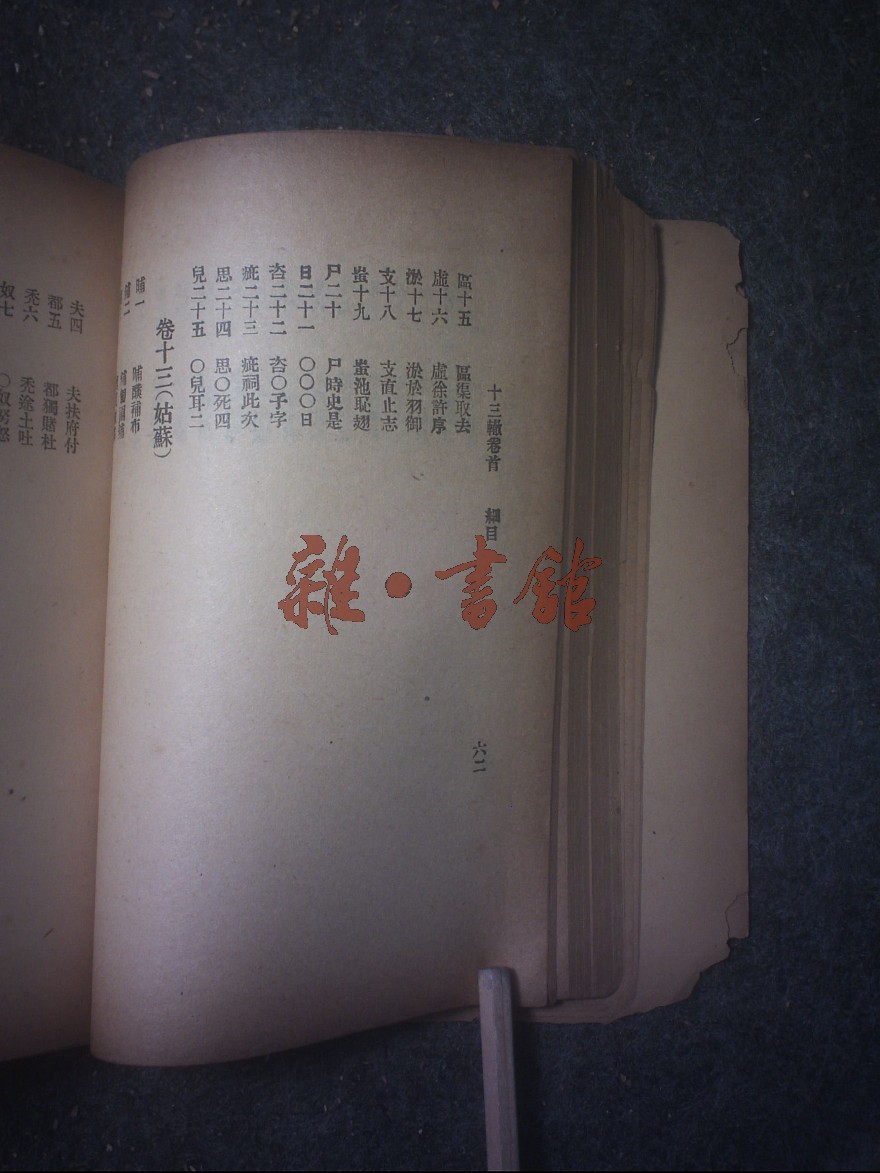 十三轍卷首　綱目
六二
區十五　區渠取去
虛十六　虛徐許序
淤十七　淤於羽御
支十八　支直止志
蚩十九　蚩池恥翅
尸二十　尸時史是
日二十一　〇〇〇日
咨二十二　咨〇子字
疵二十三　疵祠此次
思二十四　思〇死四
兒二十五　〇兒耳二
卷十三（姑蘇）
夫四　夫扶府付
都五　都獨賭杜
禿六　禿途土吐
雜·書館